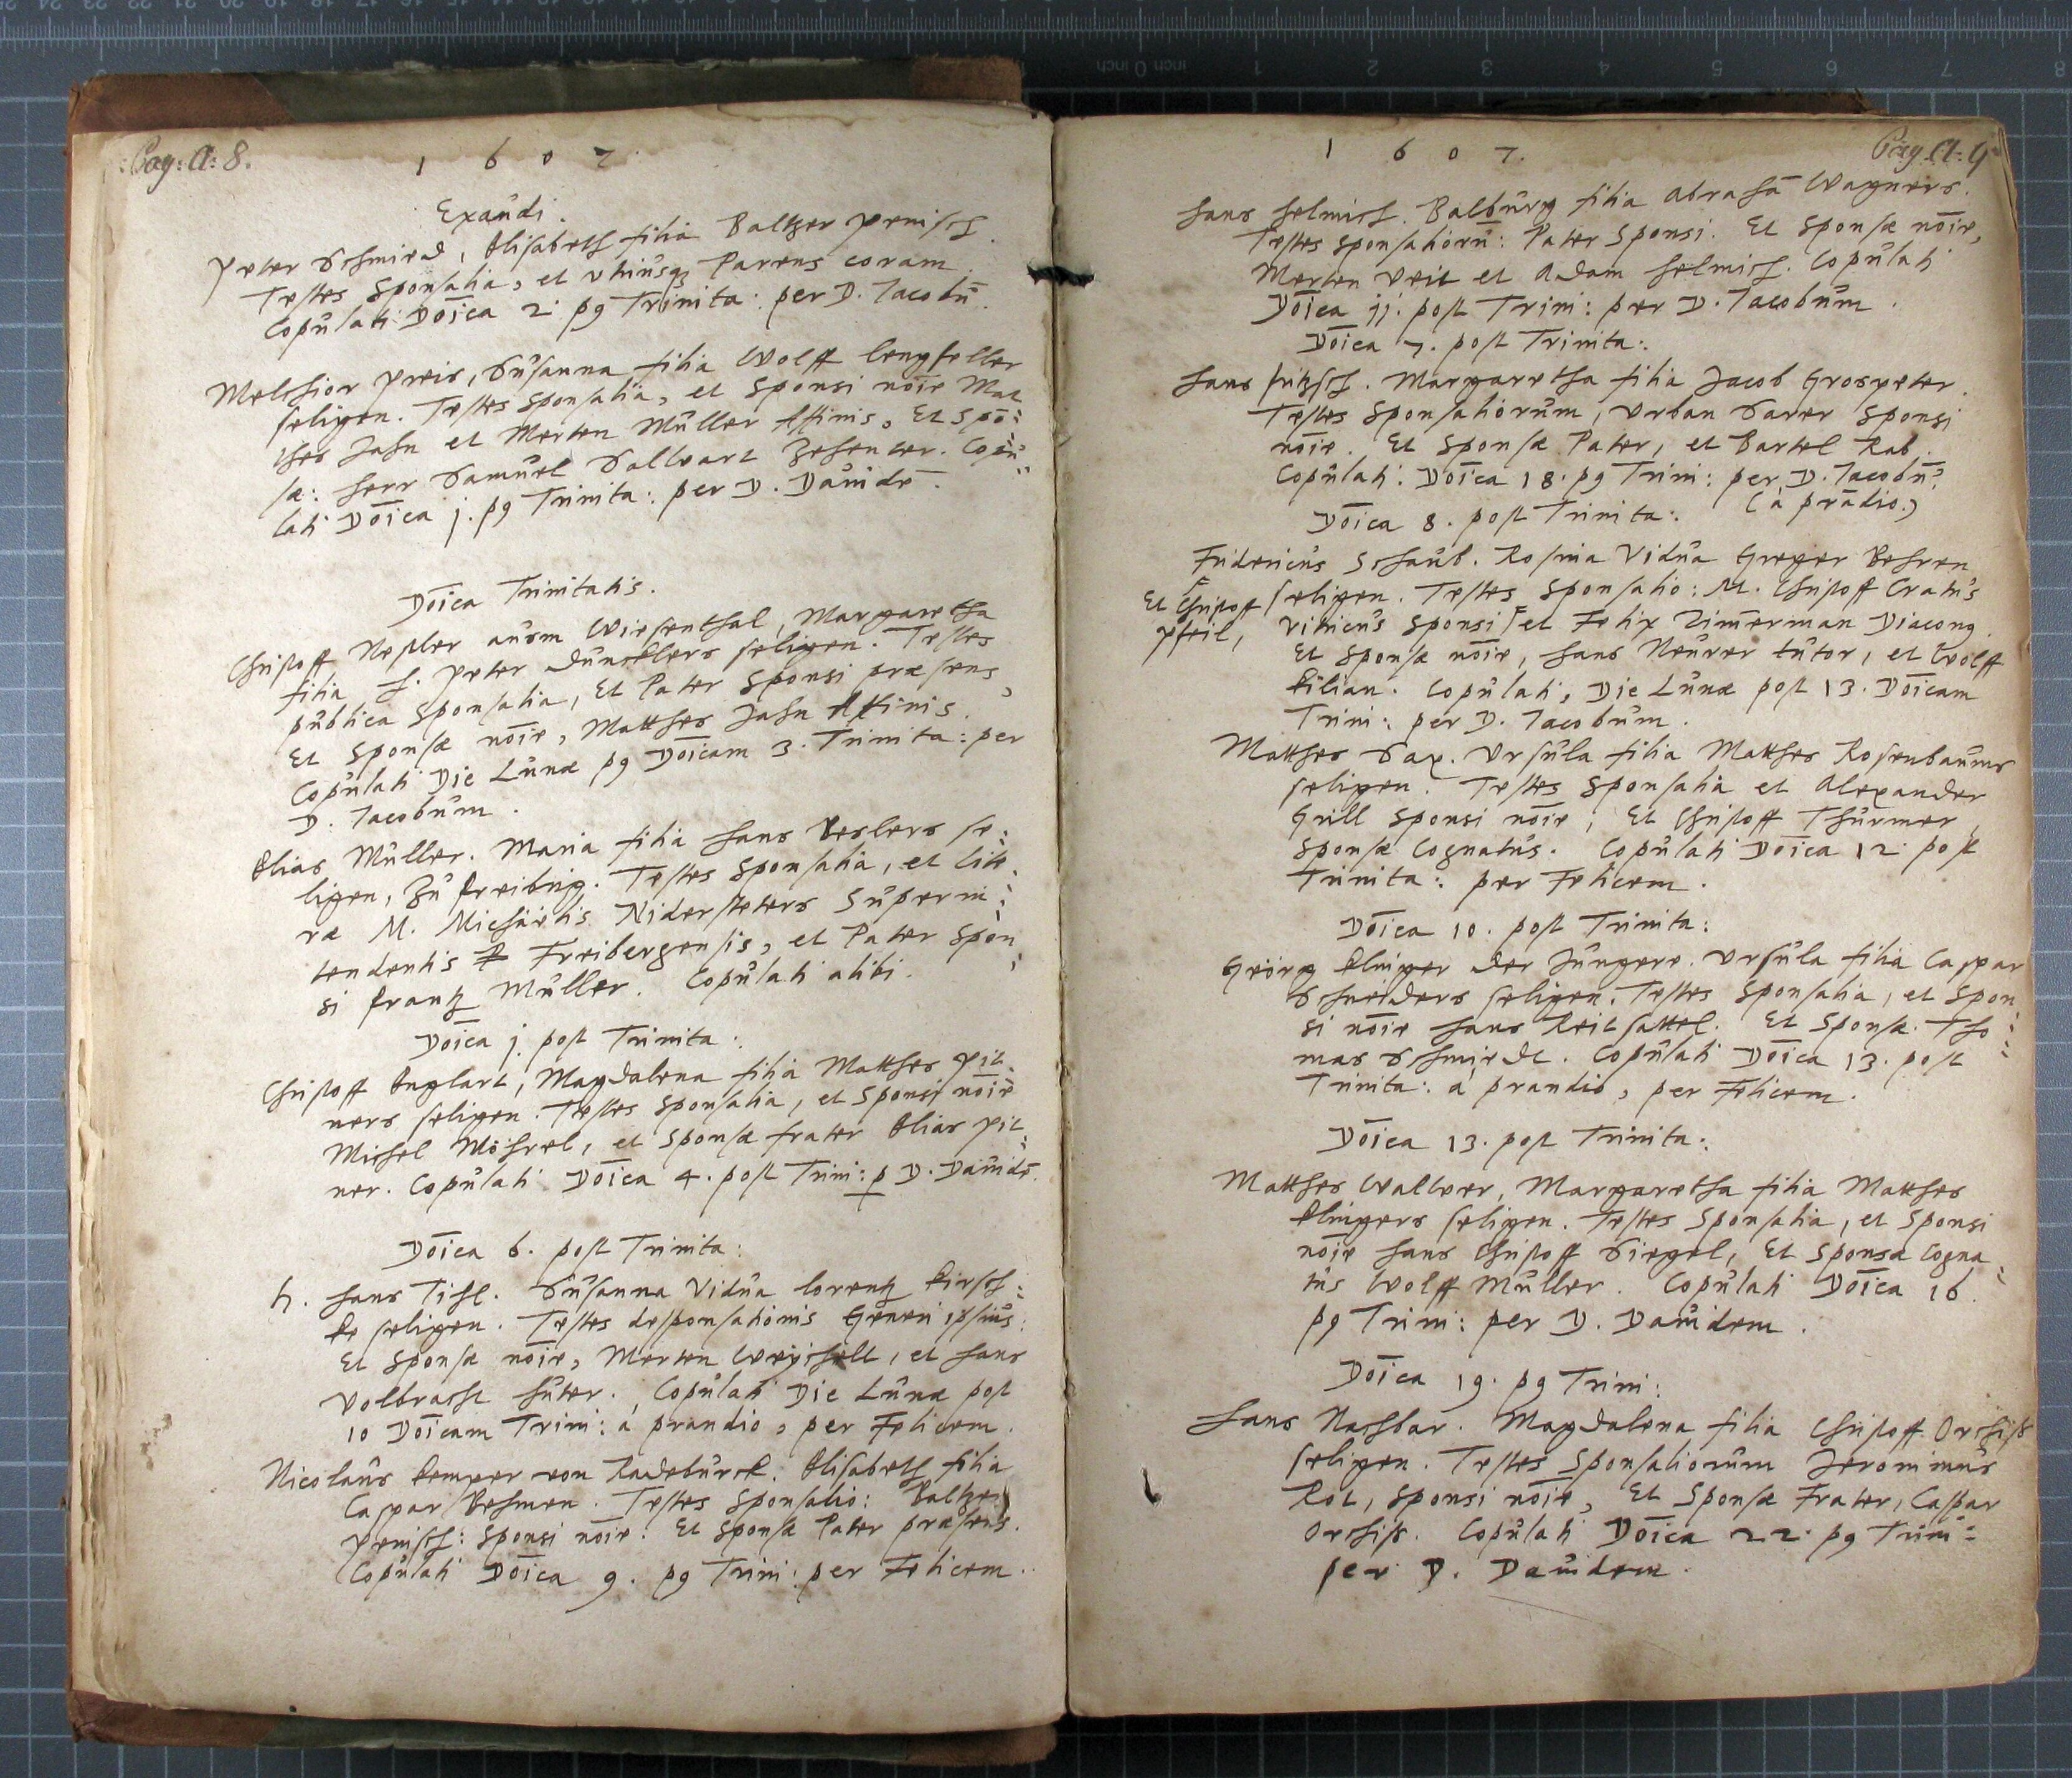 Pag: A: 8.
1 6 0 7.
Exaudi.
Peter Schmied, Elisabeth filia Baltzer Penisch.
Testes Sponsalia, et utriusq Parens coram.
Copulati Dōica 2. pg Trinita: per D. Jacobū.
Melchior Preis, Susanna filia Wolff Lengfeller
seligen. Testes Sponsalia, et Sponsi nōie Mat
thes Jahn et Merten Müller Affinis, Et Spō:
sæ: Herr Samuel Sallwart Zehenter. Copu:
lati Dōica j. pg Trinita: per D. Davidē.
Dōica Trinitatis.
Christoff Nestler ausm Wiesenthal, Margaretha
filia H. Peter Düncklers seligen. Testes
publica Sponsalia, Et Pater Sponsi præsens,
Et Sponsæ nōie, Matthes Jahn Affinis.
Copulati Die Lunæ pg Dōicam 3. Trinita: per
D. Jacobum.
Elias Müller. Maria filia Hans Keslers se:
ligen, Zu Freibrig. Testes Sponsalia, et litte
ræ M. Michaëlis Nidersteters Superin:
tendentis Freibergensis, et Pater Spon:
si Frantz Müller. Copulati alibi.
Dōica j. post Trinita:
Christoff Englart, Magdalena filia Matthes Pit
ners seligen. Testes Sponsalia, et Sponsi nōie
Michel Möstel, et Sponsæ frater Elias Pit:
ner. Copulati Dōica 4. post Trini: p D. Davidē.
Dōica 6. post Trinita:
H. Hans Tihl. Susanna Vidua Lorentz Kirsch:
ke seligen. Testes desponsationis Generi ipsius:
Et Sponsæ nōie, Merten Weischell, et Hans
Volbracht Huter. Copulati Die Lunæ post
10 Dōicam Trini: à prandio, per Felicem.
Nicolaus Kemper von Radeburck. Elisabeth filia
Caspar Behmen. Testes Sponsalio: Baltzer
Penisch: Sponsi nōie: Et Sponsæ Pater præsens.
Copulati Dōica 9. pg Trini: per Felicem.
1 6 0 7.
Pag. A: 9
Hans Helmich. Walburg filia Abrahā Wagners.
Testes Sponsaliorū: Pater Sponsi. Et Sponsæ nōie,
Merten Veit et Adam Helmich. Copulati
Dōica jj. post Trini: per D. Jacobum.
Dōica 7. post Trinita:
Hans Fritzsch. Margaretha filia Jacob Grospeter.
Testes Sponsaliorum, Urban Sarer Sponsi
nōie. Et Sponsæ Pater, et Bartel Rab.
Copulati: Dōica 18. pg Trini: per D. Jacobū
(à prādio.)
Dōica 8. post Trinita:
Fridericus Schaub. Rosina Vidua Greger Behren
seligen. Testes Sponsalio: M. Christoff Cratus
Et Christoff
Pfeil,
vitricus Sponsi et Felix Zimerman Diacong.
Et Sponsæ nōie, Hans Neurer tutor, et Wolff
Kilian. Copulati, Die Lunæ post 13. Dōicam
Trini: per D. Jacobum.
Matthes Sax. Ursula filia Matthes Rosenbaums
seligen. Testes Sponsalia et Alexander
Grill Sponsi nōie; Et Christoff Thürmer,
Sponsæ Cognatus. Copulati Dōica 12. post
Trinita: per Felicem.
Dōica 10. post Trinita:
Geörg Klinger der Jüngere. Ursula filia Caspar
Schneiders seligen. Testes Sponsalia, et Spon
si nōie Hans Reitsattel. Et Sponsæ. Tho:
mas Schmiedt. Copulati Dōica 13. post
Trinita: à prandio, per Felicem.
Dōica 13. post Trinita:
Matthes Walwer, Margaretha filia Matthes
Klingers seligen. Testes Sponsalia, et Sponsi
nōie Hans Christoff Siegel, Et Sponsæ Cogna:
tus Wolff Müller. Copulati Dōica 16.
pg Trini: per D. Davidem.
Dōica 19. pg Trini:
Hans Nachbar. Magdalena filia Christoff Orthiß
seligen. Testes Sponsaliorum Jeronimus
Rot, Sponsi nōie, Et Sponsæ Frater, Caspar
Orthiß. Copulati Dōica 22. pg Trini:
per D. Davidem.